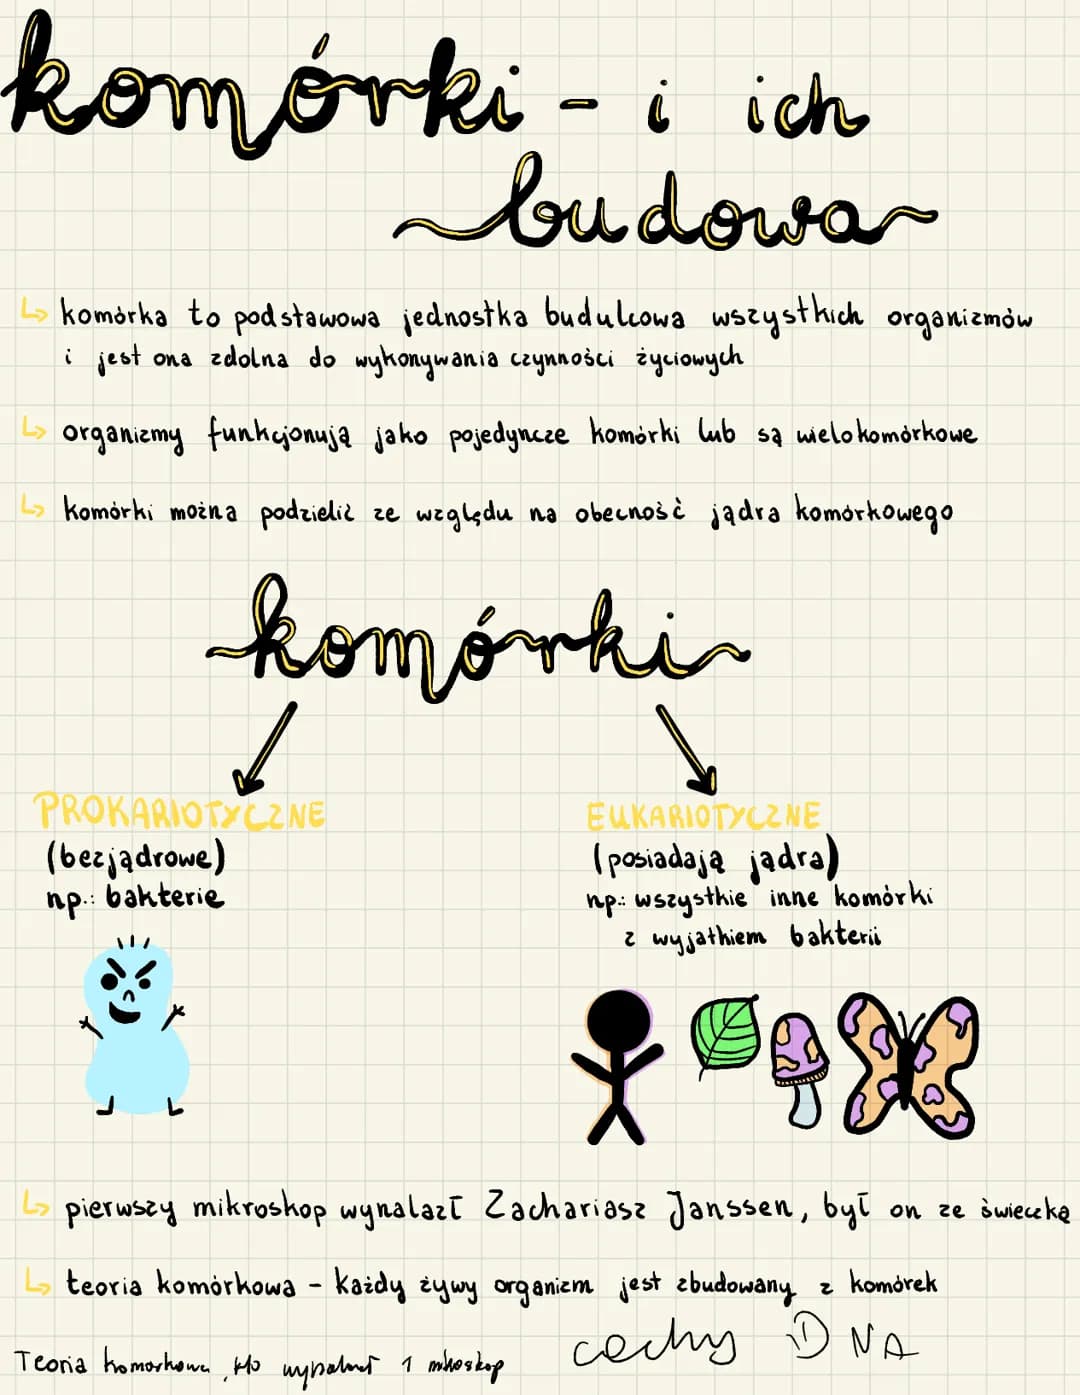 komórki - i ich
budowa
komórka to podstawowa jednostka budulcowa wszystkich organizmów
i jest ona zdolna do wykonywania czynności życiowych
organizmy funkcjonują jako pojedyncze komórki lub są wielokomórkowe
komórki można podzielić ze względu na obecność jądra komórkowego
komórki
PROKARIOTYCZNE
(bezjądrowe)
np.: bakterie
EUKARIOTYCZNE
(posiadają jądra)
np.: wszystkie inne komórki
z wyjątkiem bakterii
pierwszy mikroskop wynalazł Zachariasz Janssen, był on ze świeczką
teoria komórkowa - każdy żywy organizm jest zbudowany z komórek
cechy DNA
Teoria komorkowa, kto 1 mikroskop